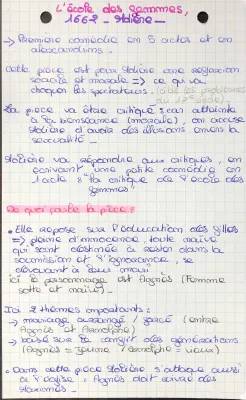 L'école des femmes,
1662 - Molière -
→ Première comédie en 5 actes et en
alexandrins.
Cette pièce est pour Molière une réflexion
sociale et morale => ce qui va
choquer les spectateurs.
La pièce va être critiquée : car atteinte
à la bienséance (morale), on accuse
Molière d'avoir des allusions envers la
sexualité.
Molière va répondre aux critiques, en
écrivant une petite comédie en
1 acte : "la critique de l'école des
femmes"
De quoi parle la pièce :
• Elle repose sur l'éducation des filles
=> pleine d'innocence, toute naïve
qui sont destinée à rester dans la
soumission et l'ignorance, se
dévouant à leur mari
ici le personnage est Agnès (femme
sotte et naïve).
Ici 2 thèmes importants :
→ mariage arrangé / forcé (entre
Agnès et Arnolphe)
→ basé sur le conflit des générations
(Agnès = jeune / Arnolphe = vieux)
• Dans cette pièce Molière s'attaque aussi
à l'église : Agnès doit suivre des
maximes.